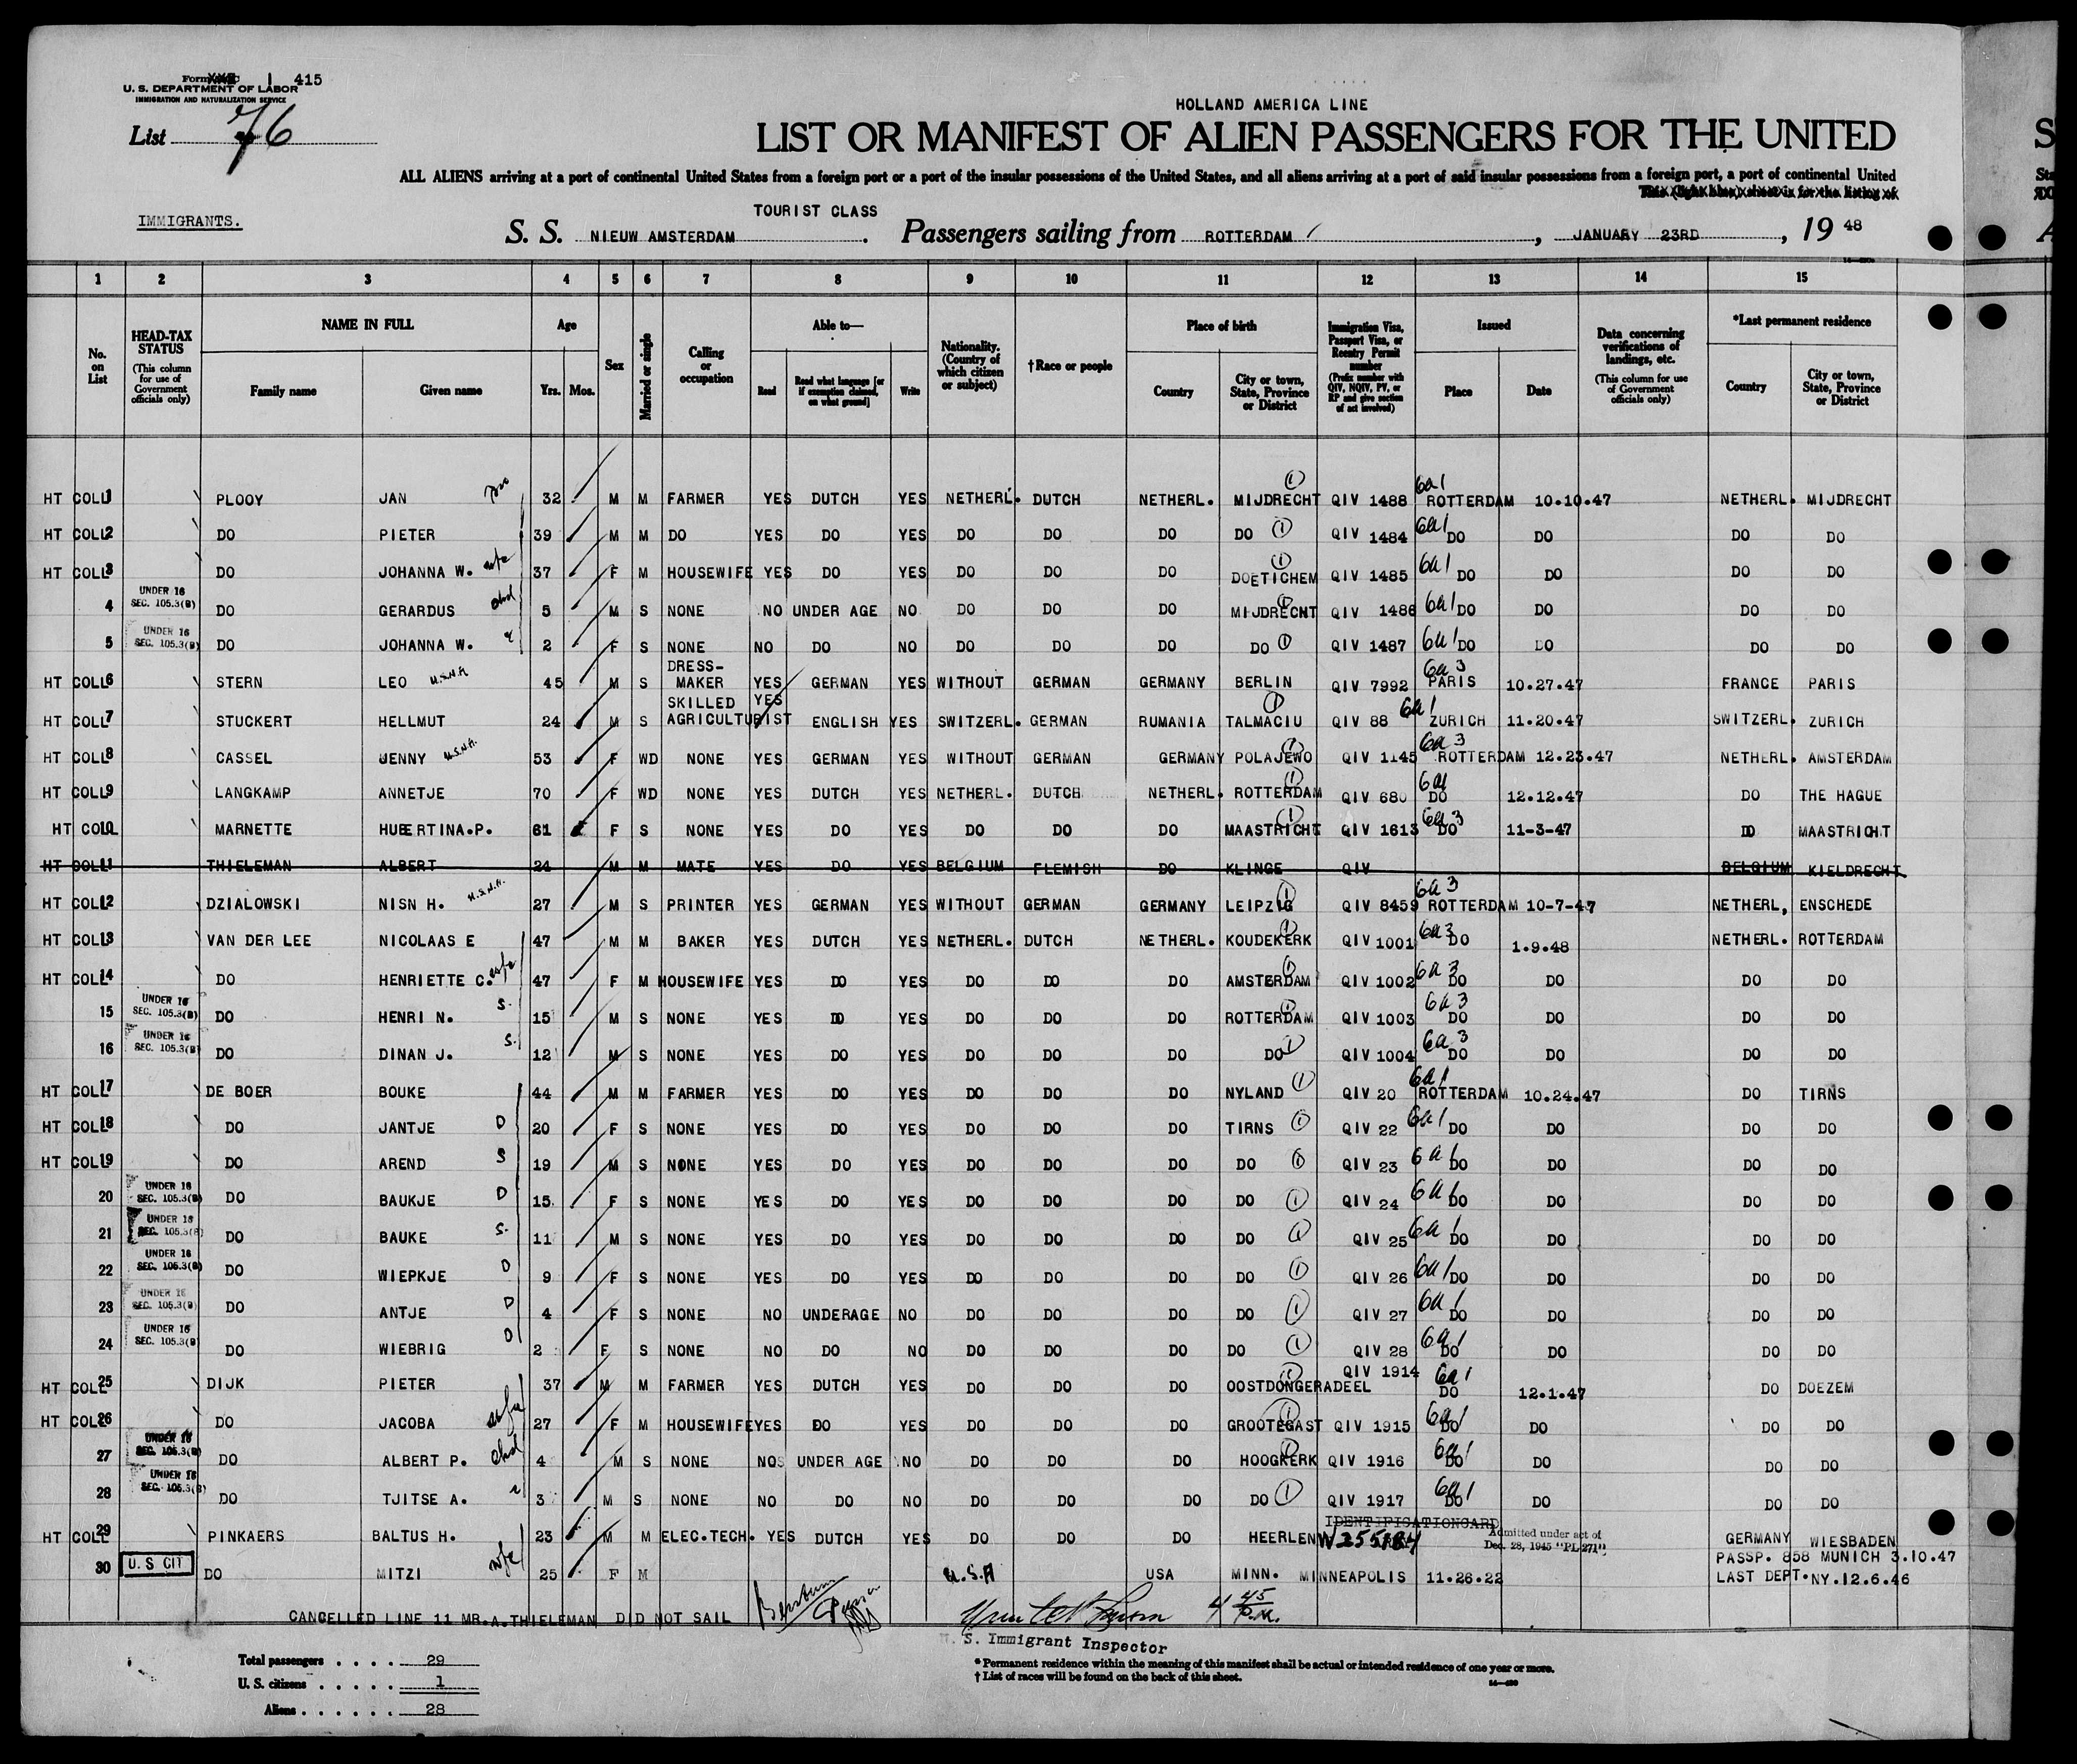 Form I 415
U. S. DEPARTMENT OF LABOR
IMMIGRATION AND NATURALIZATION SERVICE
List 76
HOLLAND AMERICA LINE
LIST OR MANIFEST OF ALIEN PASSENGERS FOR THE UNITED
ALL ALIENS arriving at a port of continental United States from a foreign port or a port of the insular possessions of the United States, and all aliens arriving at a port of said insular possessions from a foreign port, a port of continental United
This (light blue) sheet is for the listing of
IMMIGRANTS.
TOURIST CLASS
S. S. NIEUW AMSTERDAM. Passengers sailing from ROTTERDAM, JANUARY 23RD, 19 48
1 2 3 4 5 6 7 8 9 10 11 12 13 14 15
No. on List
HEAD-TAX STATUS (This column for use of Government officials only)
NAME IN FULL Family name Given name
Age Yrs. Mos.
Sex
Married or single
Calling or occupation
Able to— Read Read what language [or if exemption claimed, on what ground] Write
Nationality. (Country of which citizen or subject)
†Race or people
Place of birth Country City or town, State, Province or District
Immigration Visa, Passport Visa, or Reentry Permit number (Prefix number with QIV, NQIV, PV, or RP and give section of act involved)
Issued Place Date
Data concerning verifications of landings, etc. (This column for use of Government officials only)
*Last permanent residence Country City or town, State, Province or District
HT COLL 1 PLOOY JAN 32 M M FARMER YES DUTCH YES NETHERL. DUTCH NETHERL. MIJDRECHT QIV 1488 6a1 ROTTERDAM 10.10.47 NETHERL. MIJDRECHT
HT COLL 2 DO PIETER 39 M M DO YES DO YES DO DO DO DO QIV 1484 6a1 DO DO DO DO
HT COLL 3 DO JOHANNA W. wfe 37 F M HOUSEWIFE YES DO YES DO DO DO DOETICHEM QIV 1485 6a1 DO DO DO DO
4 UNDER 16 SEC. 105.3(B) DO GERARDUS chd 5 M S NONE NO UNDER AGE NO DO DO DO MIJDRECHT QIV 1486 6a1 DO DO DO DO
5 UNDER 16 SEC. 105.3(B) DO JOHANNA W. 2 F S NONE NO DO NO DO DO DO DO QIV 1487 6a1 DO DO DO DO
HT COLL 6 STERN LEO U.S.N.A. 45 M S DRESS-MAKER YES GERMAN YES WITHOUT GERMAN GERMANY BERLIN QIV 7992 6a3 PARIS 10.27.47 FRANCE PARIS
HT COLL 7 STUCKERT HELLMUT 24 M S SKILLED AGRICULTURIST YES ENGLISH YES SWITZERL. GERMAN RUMANIA TALMACIU QIV 88 6a1 ZURICH 11.20.47 SWITZERL. ZURICH
HT COLL 8 CASSEL JENNY U.S.N.A. 53 F WD NONE YES GERMAN YES WITHOUT GERMAN GERMANY POLAJEWO QIV 1145 6a3 ROTTERDAM 12.23.47 NETHERL. AMSTERDAM
HT COLL 9 LANGKAMP ANNETJE 70 F WD NONE YES DUTCH YES NETHERL. DUTCH NETHERL. ROTTERDAM QIV 680 6a1 DO 12.12.47 DO THE HAGUE
HT COLL 10 MARNETTE HUBERTINA.P. 61 F S NONE YES DO YES DO DO DO MAASTRICHT QIV 1613 6a3 DO 11-3-47 DO MAASTRICHT
HT COLL 11 THIELEMAN ALBERT 24 M M MATE YES DO YES BELGIUM FLEMISH DO KLINGE QIV BELGIUM KIELDRECHT
HT COLL 12 DZIALOWSKI NISN H. U.S.N.A. 27 M S PRINTER YES GERMAN YES WITHOUT GERMAN GERMANY LEIPZIG QIV 8459 6a3 ROTTERDAM 10-7-47 NETHERL, ENSCHEDE
HT COLL 13 VAN DER LEE NICOLAAS E 47 M M BAKER YES DUTCH YES NETHERL. DUTCH NETHERL. KOUDEKERK QIV 1001 6a3 DO 1.9.48 NETHERL. ROTTERDAM
HT COLL 14 DO HENRIETTE C. wfe 47 F M HOUSEWIFE YES DO YES DO DO DO AMSTERDAM QIV 1002 6a3 DO DO DO DO
15 UNDER 16 SEC. 105.3(B) DO HENRI N. S. 15 M S NONE YES DO YES DO DO DO ROTTERDAM QIV 1003 6a3 DO DO DO DO
16 UNDER 16 SEC. 105.3(B) DO DINAN J. S. 12 M S NONE YES DO YES DO DO DO DO QIV 1004 6a3 DO DO DO DO
HT COLL 17 DE BOER BOUKE 44 M M FARMER YES DO YES DO DO DO NYLAND QIV 20 6a1 ROTTERDAM 10.24.47 DO TIRNS
HT COLL 18 DO JANTJE D 20 F S NONE YES DO YES DO DO DO TIRNS QIV 22 6a1 DO DO DO DO
HT COLL 19 DO AREND S 19 M S NONE YES DO YES DO DO DO DO QIV 23 6a1 DO DO DO DO
20 UNDER 16 SEC. 105.3(B) DO BAUKJE D 15 F S NONE YES DO YES DO DO DO DO QIV 24 6a1 DO DO DO DO
21 UNDER 16 SEC. 105.3(B) DO BAUKE S. 11 M S NONE YES DO YES DO DO DO DO QIV 25 6a1 DO DO DO DO
22 UNDER 16 SEC. 105.3(B) DO WIEPKJE D 9 F S NONE YES DO YES DO DO DO DO QIV 26 6a1 DO DO DO DO
23 UNDER 16 SEC. 105.3(B) DO ANTJE D 4 F S NONE NO UNDERAGE NO DO DO DO DO QIV 27 6a1 DO DO DO DO
24 UNDER 16 SEC. 105.3(B) DO WIEBRIG D 2 F S NONE NO DO NO DO DO DO DO QIV 28 6a1 DO DO DO DO
HT COLL 25 DIJK PIETER 37 M M FARMER YES DUTCH YES DO DO DO OOSTDONGERADEEL QIV 1914 6a1 DO 12.1.47 DO DOEZEM
HT COLL 26 DO JACOBA wfe 27 F M HOUSEWIFE YES DO YES DO DO DO GROOTEGAST QIV 1915 6a1 DO DO DO DO
27 UNDER 16 SEC. 105.3(B) DO ALBERT P. chd 4 M S NONE NO UNDER AGE NO DO DO DO HOOGKERK QIV 1916 6a1 DO DO DO DO
28 UNDER 16 SEC. 105.3(B) DO TJITSE A. 3 M S NONE NO DO NO DO DO DO DO QIV 1917 6a1 DO DO DO DO
HT COLL 29 PINKAERS BALTUS H. 23 M M ELEC.TECH. YES DUTCH YES DO DO DO HEERLEN IDENTIFICATIONCARD W255184 Admitted under act of Dec. 28, 1945 "PL 271" GERMANY WIESBADEN
30 U.S CIT DO MITZI wfe 25 F M U.S.A USA MINN. MINNEAPOLIS 11.26.22 PASSP. 858 MUNICH 3.10.47
LAST DEPT. NY.12.6.46
CANCELLED LINE 11 MR.A.THIELEMAN DID NOT SAIL 4 45 P.M.
U. S. Immigrant Inspector
Total passengers . . . . 29
U. S. citizens . . . . . 1
Aliens . . . . . . 28
* Permanent residence within the meaning of this manifest shall be actual or intended residence of one year or more.
† List of races will be found on the back of this sheet.